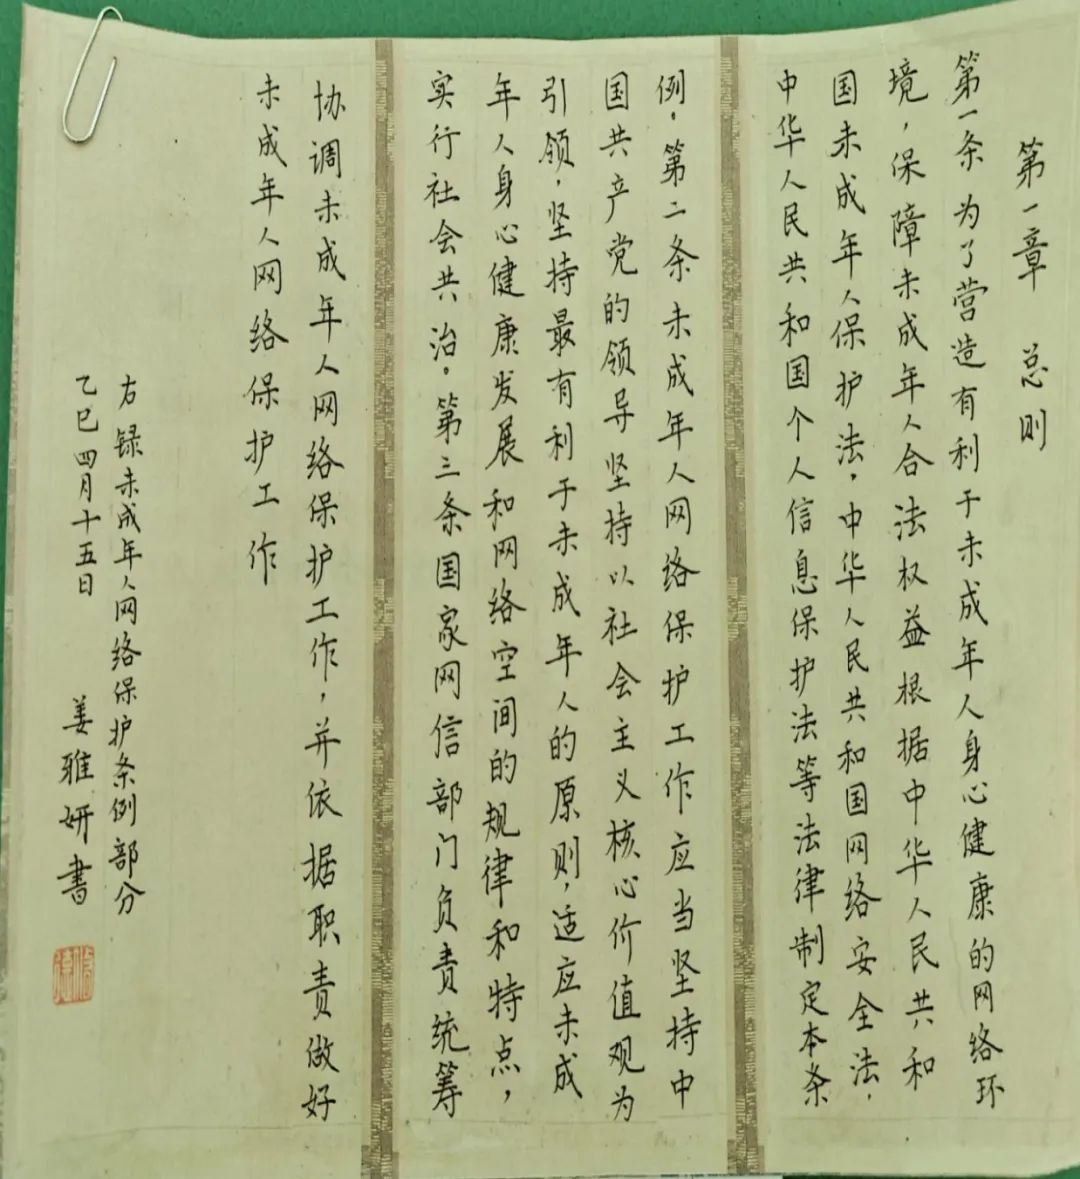 第一章 总则
第一条 为了营造有利于未成年人身心健康的网络环
境，保障未成年人合法权益根据中华人民共和
国未成年人保护法，中华人民共和国网络安全法，
中华人民共和国个人信息保护法等法律制定本条
例。第二条未成年人网络保护工作应当坚持中
国共产党的领导坚持以社会主义核心价值观为
引领，坚持最有利于未成年人的原则，适应未成
年人身心健康发展和网络空间的规律和特点，
实行社会共治。第三条国家网信部门负责统筹
协调未成年人网络保护工作，并依据职责做好
未成年人网络保护工作
右录未成年人网络保护条例部分
乙巳四月十五日 姜雅妍书